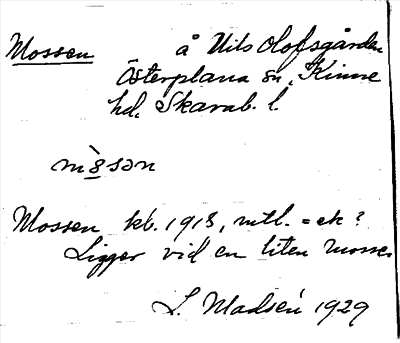 Mossen å Nils Olofsgården
Österplana sn, Kinne
hd, Skarab. l.
mòsən
Mossen kb. 1918, mtl. = ek?
Ligger vid en liten mosse.
L. Madsén 1929